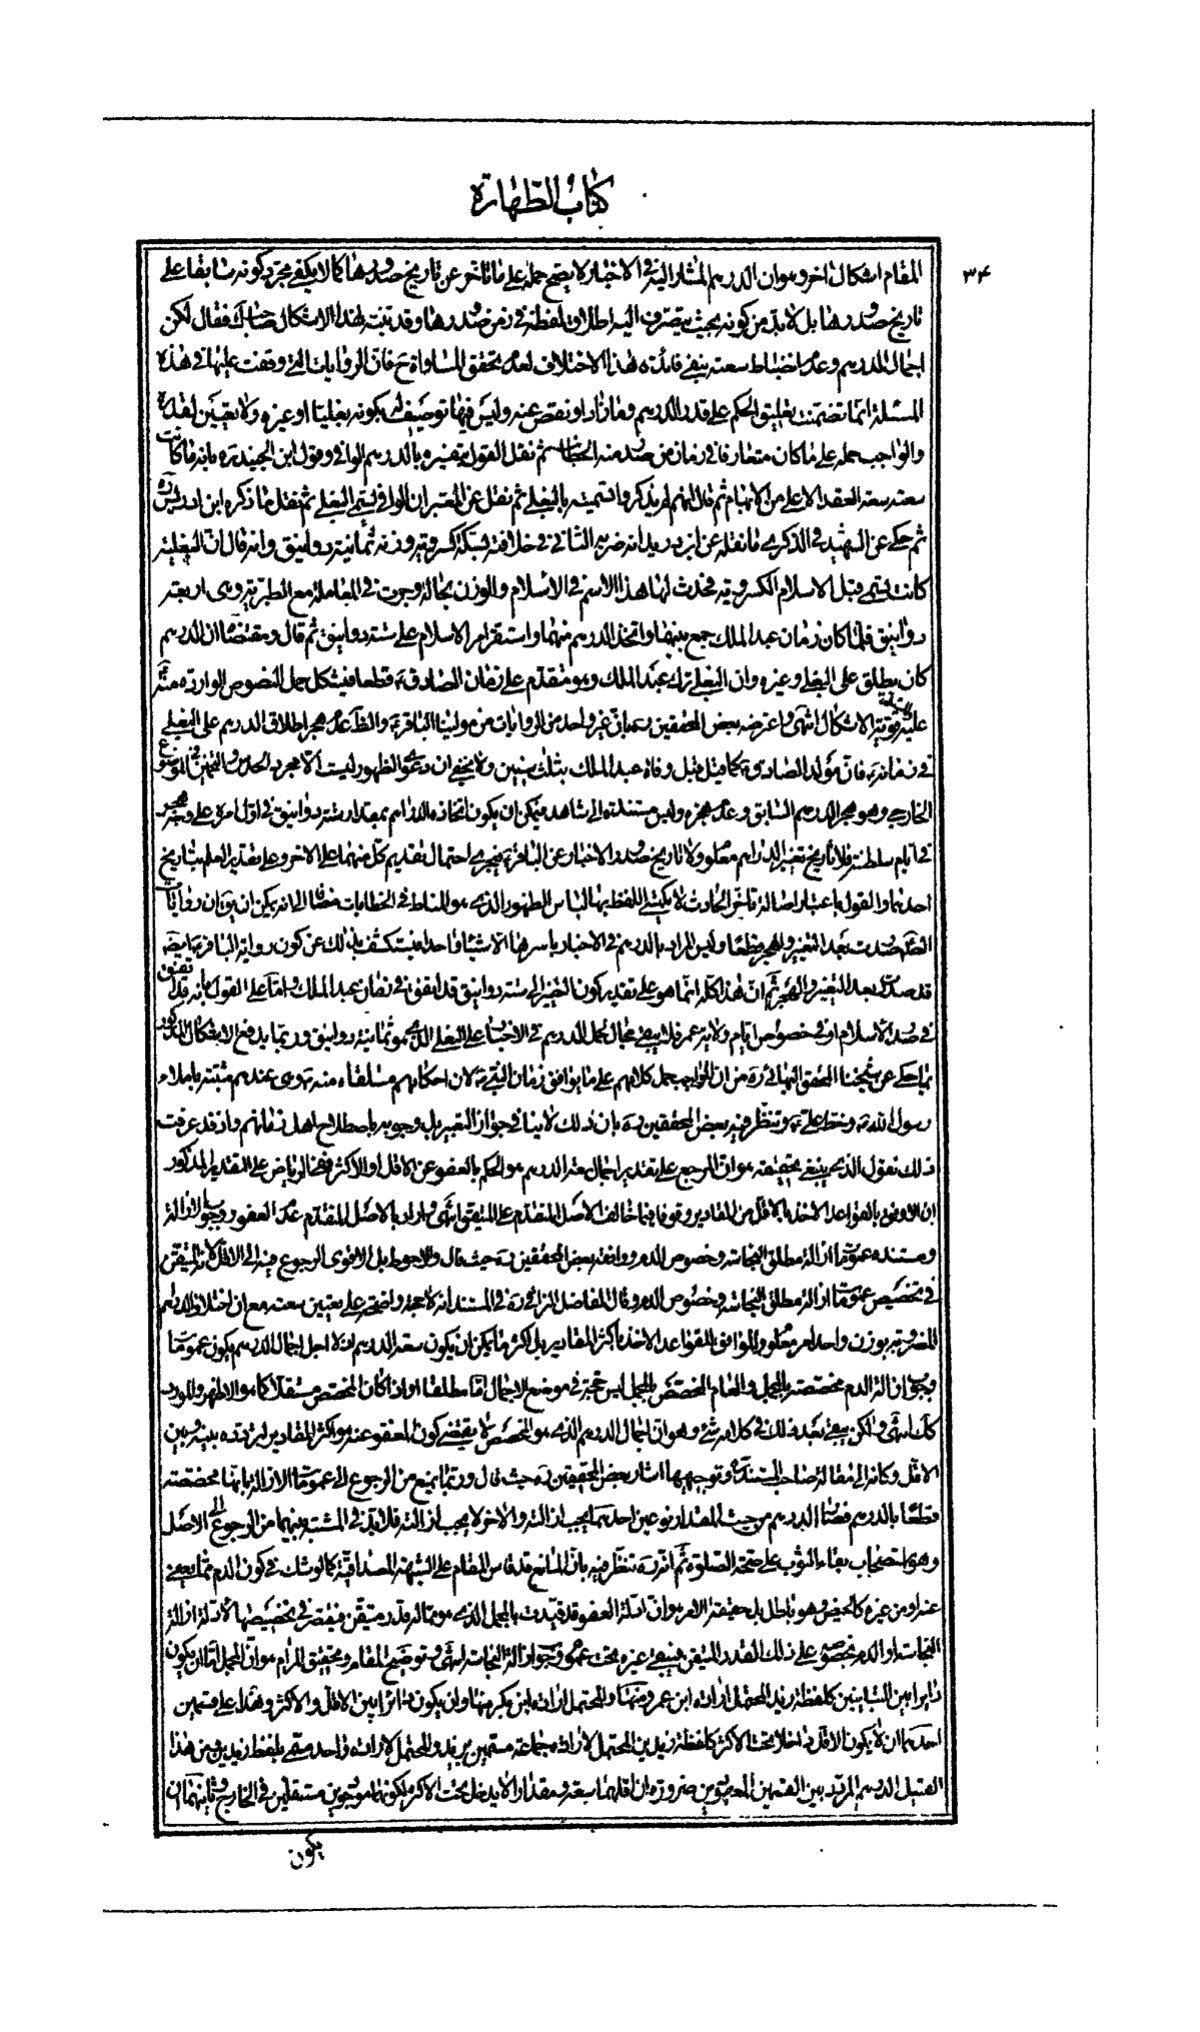 كتاب الطهارة
٣٤
المقام اشكال اخر وهو ان الدرهم المشار اليه فى الاخبار لا يصح حمله على ما تاخر عن تاريخ صدورها كما لا يكفى مجرد كونه سابقا على
تاريخ صدورها بل لا بد من كونه بحيث ينصرف اليه اطلاق لفظه فى زمن صدورها وقد تنبه لهذا الاشكال صاحب فقال لكن
اجمال الدرهم وعدم انضباط سعته ينفى فائدة هذا الاختلاف لعدم تحقق المساواة ح فان الروايات التى وقفت عليها فى هذه
المسئلة انما تضمنت تعليق الحكم على قدر الدرهم وما زاد او نقص عنه وليس فيها توصيف له بكونه بغليا او غيره ولا تعيين لقدره
والواجب حمله على ما كان متعارفا فى زمان من صدر منه الخطاب ثم نقل القول بتفسيره بالدرهم الوافى وقول ابن الجنيد ره بانه ما كانت
سعته سعة العقد الاعلى من الابهام ثم قال انهم لم يذكروا تسميته بالبغلى ثم نقل عن المعتبر ان الوافى يسمى البغلى ثم نقل ما ذكره ابن ادريس ره
ثم حكى عن الشهيد فى الذكرى ما نقله عن ابن دريد انه ضربه الثانى فى خلافته بسكة كسروية وزنه ثمانية دوانيق وانه قال ان البغلية
كانت تسمى قبل الاسلام الكسروية فحدث لها هذا الاسم فى الاسلام والوزن بحاله وجرت فى المعاملة مع الطبرية وهى اربعة
دوانيق فلما كان زمان عبد الملك جمع بينهما واتخذ الدرهم منهما واستقر امر الاسلام على ستة دوانيق ثم قال ومقتضاه ان الدرهم
كان يطلق على البغلى وغيره وان البغلى ترك عبد الملك وهو متقدم على زمان الصادق ع قطعا فيشكل حمل النصوص الواردة منه
عليه انتهى واعترضه بعض المحققين ره بان غير واحد من الروايات من مولينا الباقر ع والظاهر عدم هجر اطلاق الدرهم على البغلى
فى زمانه ع فان مولد الصادق ع كما قيل قبل وفاة عبد الملك بثلث سنين ولا يخفى ان دعوى الظهور ليست الا مجرد الحدس والتخمين فى الموضوع
الخارجى وهو هجر الدرهم السابق وعدم هجره وليس مستندة الى شاهد فيمكن ان يكون اتخاذه الدراهم بمقدار ستة دوانيق فى اول امره على وجه هجر
فى ايام سلطنته فلا تاريخ تغيير الدراهم معلوم ولا تاريخ صدور الاخبار عن الباقر ع فيجرى احتمال تقديم كل منهما على الاخر وعلى تقدير العلم بتاريخ
احدهما والقول باعتبار اصالة تاخر الحادث لا يكتسى اللفظ بها لباس الظهور الذى هو المناط فى الخطابات مضافا الى انه يمكن ان
بعد التغيير والهجر قطعا وليس المراد بالدرهم فى الاخبار باسرها الا شيئا واحدا فيستكشف بذلك عن كون رواية الباقر ع ايضا
قد صدرت بعد التغيير والهجر ثم ان هذا كله انما هو على تقدير كون التغيير الى ستة دوانيق قد اتفق فى زمان عبد الملك واما على القول بانه قد اتفق
فى صدر الاسلام او فى خصوص ايام ولاية عمر فلا يبقى مجال لحمل الدرهم فى الاخبار على البغلى الذى هو ثمانية دوانيق وربما يدفع الاشكال المذكور
بما حكى عن شيخنا المحقق البهائى ره من ان الواجب حمل كلامهم على ما يوافق زمان النبى ص لان احكامهم متلقاة منه ص وهى عندهم مثبتة باملاء
رسول الله ص وخط على ع وتنظر فيه بعض المحققين ره بان ذلك لا ينافى جواز التعبير بل وجوبه باصطلاح اهل زمانهم واذ قد عرفت
ذلك نقول الذى ينبغى تحقيقه هو ان المرجع على تقدير اجمال سعة الدرهم هو الحكم بالعفو عن الاقل او الاكثر ففى الرياض على التقدير المذكور
ان الاوفق بالقواعد الاخذ بالاقل من المقادير وقوفا فيما خالف الاصل المتقدم على المتيقن انتهى واراد بالاصل المتقدم عدم العفو ووجوب الازالة
ومستنده عموم ما ازالة مطلق النجاسة وخصوص الدم ووافقه بعض المحققين ره حيث قال والاحوط بل الاقوى الرجوع فيه الى الاقل لانه المتيقن
فى تخصيص عمومات ازالة مطلق النجاسة وخصوص الدم وقال الفاضل النراقى ره فى المستند انه لا حجة واضحة على تعيين سعته مع ان اختلاف الدراهم
المضروبة بوزن واحد امر معلوم والموافق للقواعد الاخذ باكثر المقادير بل اكثر ما يمكن ان يكون سعة الدرهم اذ لاجل اجمال الدرهم يكون عمومات
وجوب ازالة الدم مخصصة بالمجمل والعام المخصص بالمجمل ليس حجة فى موضع الاجمال اما مطلقا او اذا كان المخصص مستقلا كما هو الاظهر والمورد
كك انتهى ولكن يبقى بعد ذلك فى كلامه شئ وهو ان اجمال الدرهم الذى هو المخصص لا يقتضى كون المعفو عنه هو اكثر المقادير لتردده بينه وبين
الاقل وكانه الى مقالة صاحب المستند ره وتوجيهها اشار بعض المحققين ره حيث قال وربما يمنع من الرجوع الى عمومات الازالة بانها مخصصة
قطعا بالدرهم فصار الدرهم من حيث المقدار نوعين احدهما يجب ازالته والاخر لا يجب ازالته فلا بد فى المشتبه بينهما من الرجوع الى الاصل
وهو استصحاب بقاء الثوب على صحة الصلوة ثم انه ره تنظر فيه بان المانع قد قاس المقام على الشبهة المصداقية كما لو شك فى كون الدم مما يعفى
عنه او من غيره كالحيض وهو باطل بل حقيقة الامر هو ان ادلة العفو قد قيدت بالمجمل الذى هو مما له قدر متيقن فيقتصر فى تخصيصها لادلة ازالة
النجاسة او الدم بخصوصه على ذلك القدر المتيقن فيبقى غيره تحت عموم وجوب ازالة النجاسة انتهى وتوضيح المقام وتحقيق المرام هو ان المجمل اما ان يكون
دايرا بين المتباينين كلفظة زيد المحتمل لارادة ابن عمرو منها والمحتمل لارادة ابن بكر منها وان يكون دائرا بين الاقل والاكثر وهذا على قسمين
احدهما ان لا يكون الاقل داخلا تحت الاكثر كلفظة زيدين المحتمل لارادة جماعة مسمين بزيد والمحتمل لارادة واحد مسمى بلفظ زيدين ومن هذا
القبيل الدرهم المردد بين القسمين المعروفين ضرورة ان اقلهما سعة ومقدارا لا يدخل تحت الاكثر لكونهما موجودين مستقلين فى الخارج وثانيهما ان
يكون